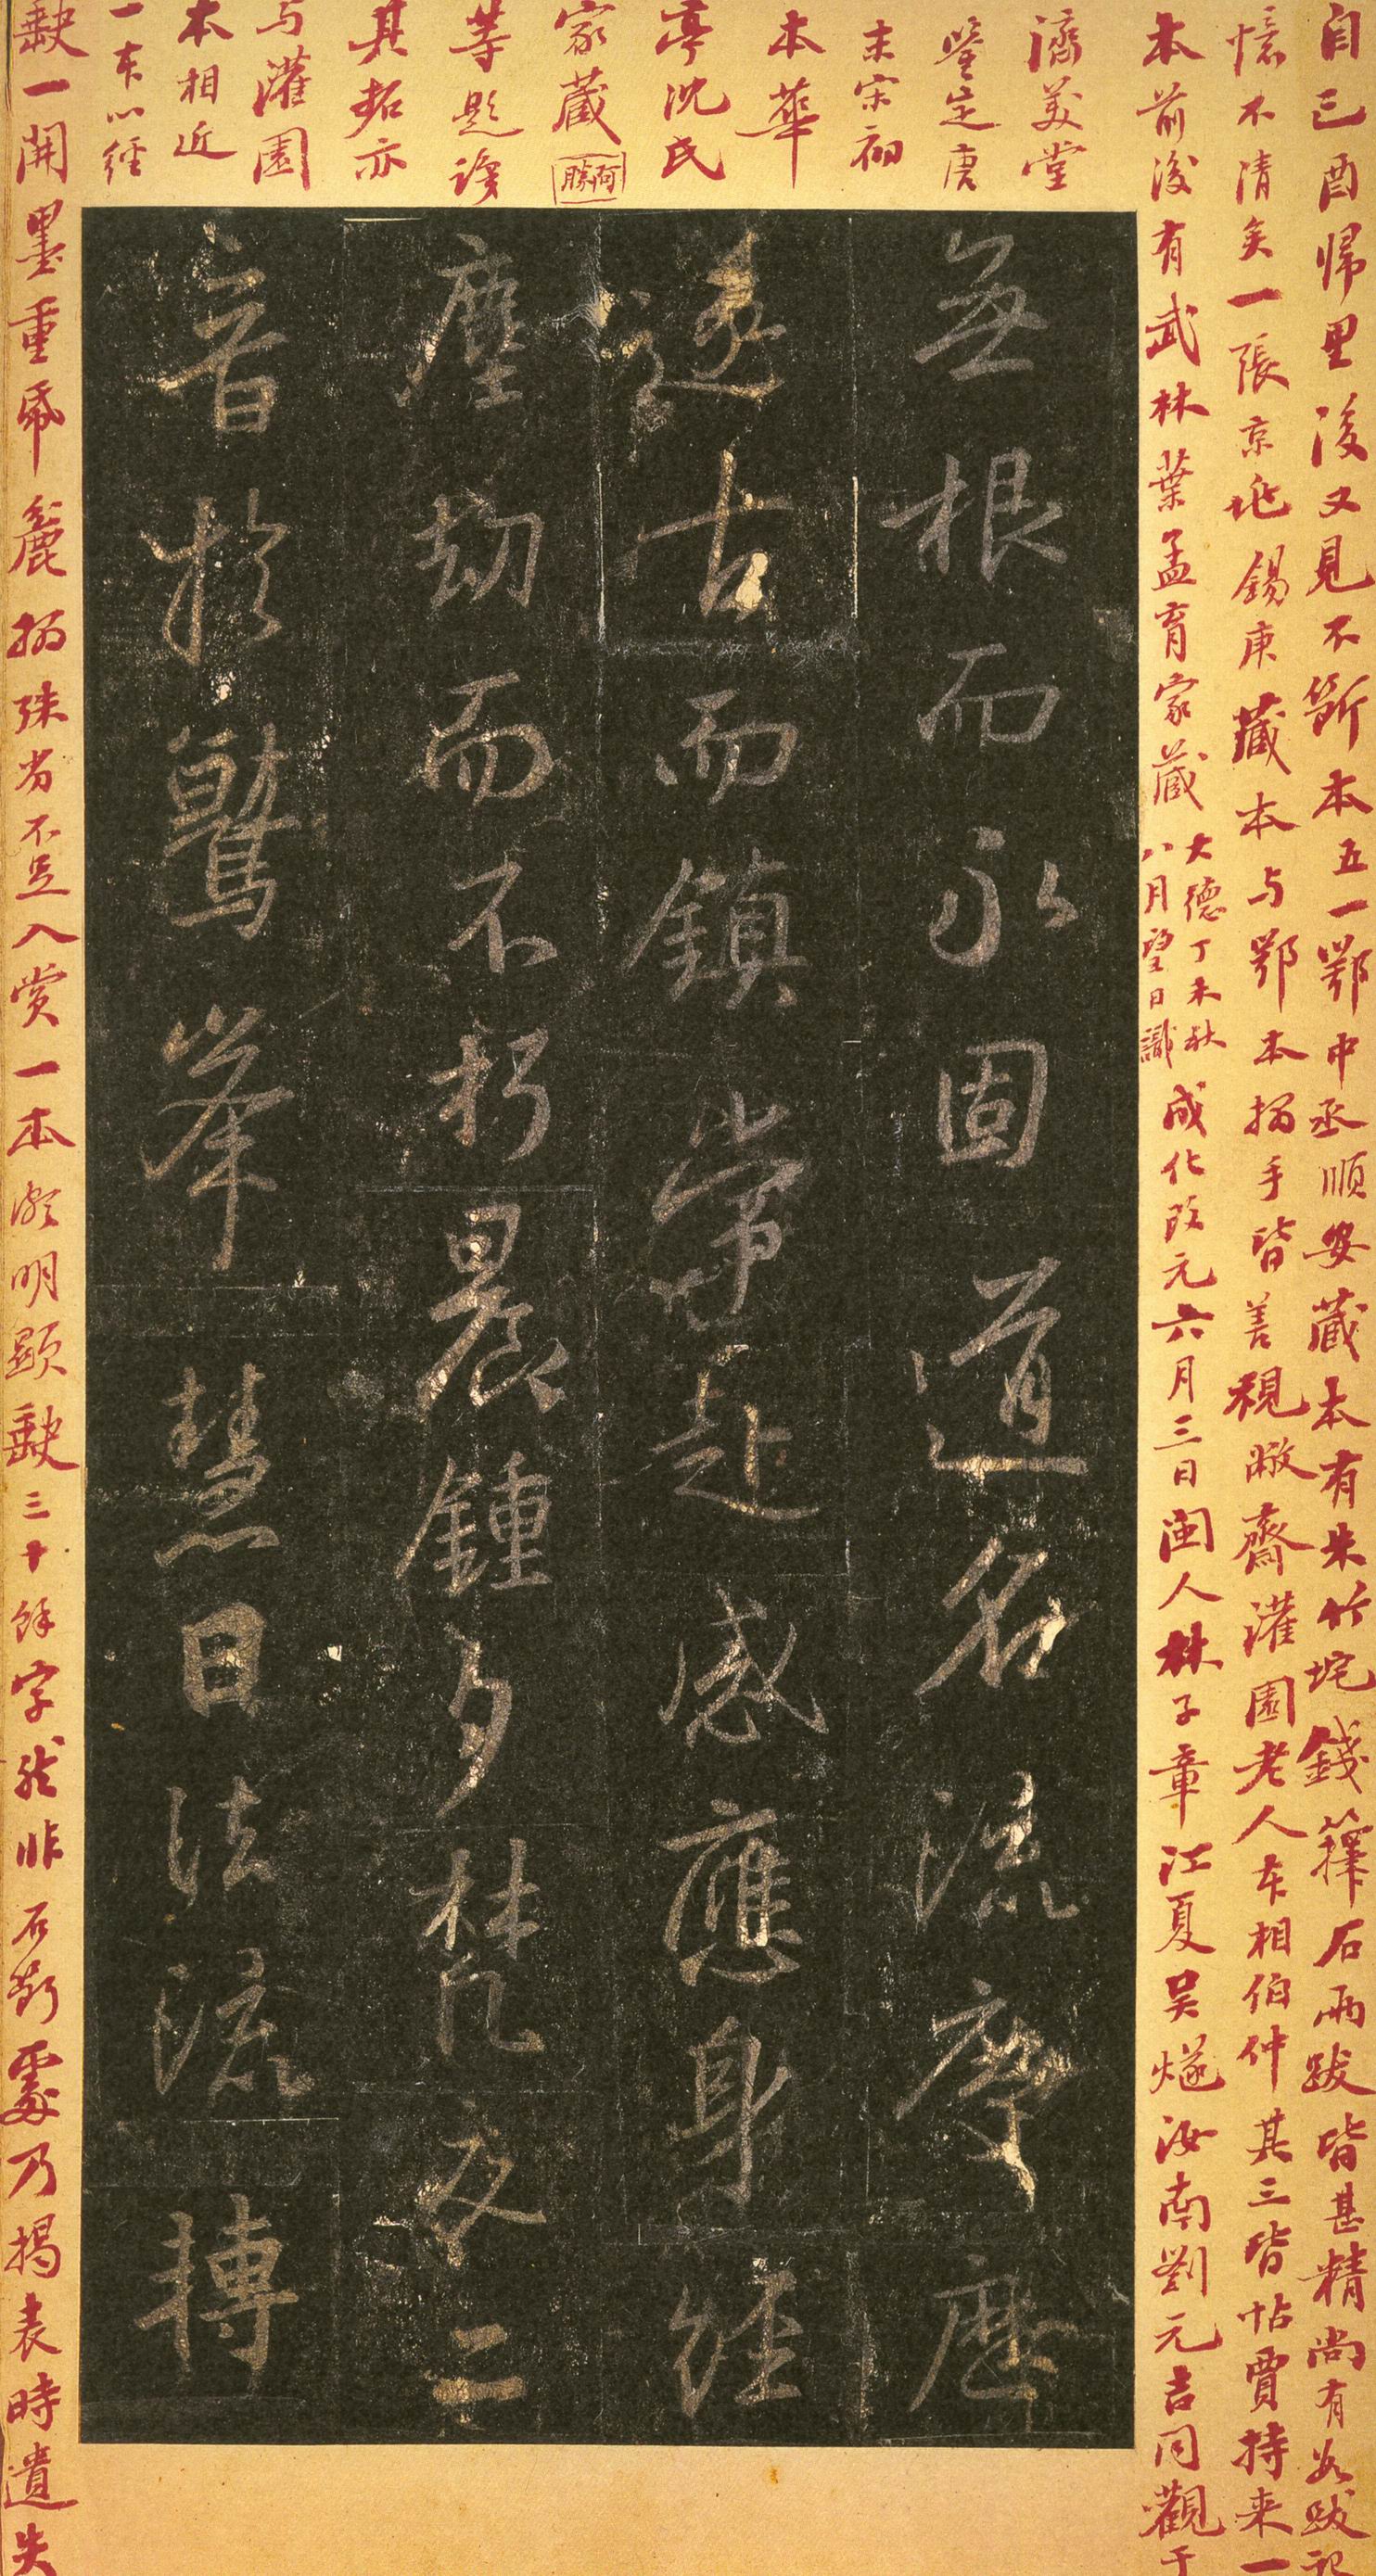 自己酉歸里後又見不斷本五一鄂中丞順安藏本有朱竹垞錢籜石兩跋皆甚精尚有數跋記
憶不清矣一張京兆錫庚藏本与鄂本搨手皆善視敝齋灌園老人本相伯仲其三皆帖賈持来一
本前後有武林葉孟育家藏
大德丁未秋
八月望日識
成化改元六月三日閩人林子章江夏吴燧汝南劉元吉同觀于
濟美堂
鑒定唐
末宋初
本華
亭沈氏
家藏
等題識
其拓亦
与灌園
本相近
一本以經
無根而永固道名流慶歷
遂古而鎮常赴感應身經
塵劫而不朽晨鍾夕梵交二
音於鷲峯慧日法流轉
缺一開墨重帋麄搨殊劣不足入賞一本明顯缺三十餘字然非石斷處乃揭表時遺失